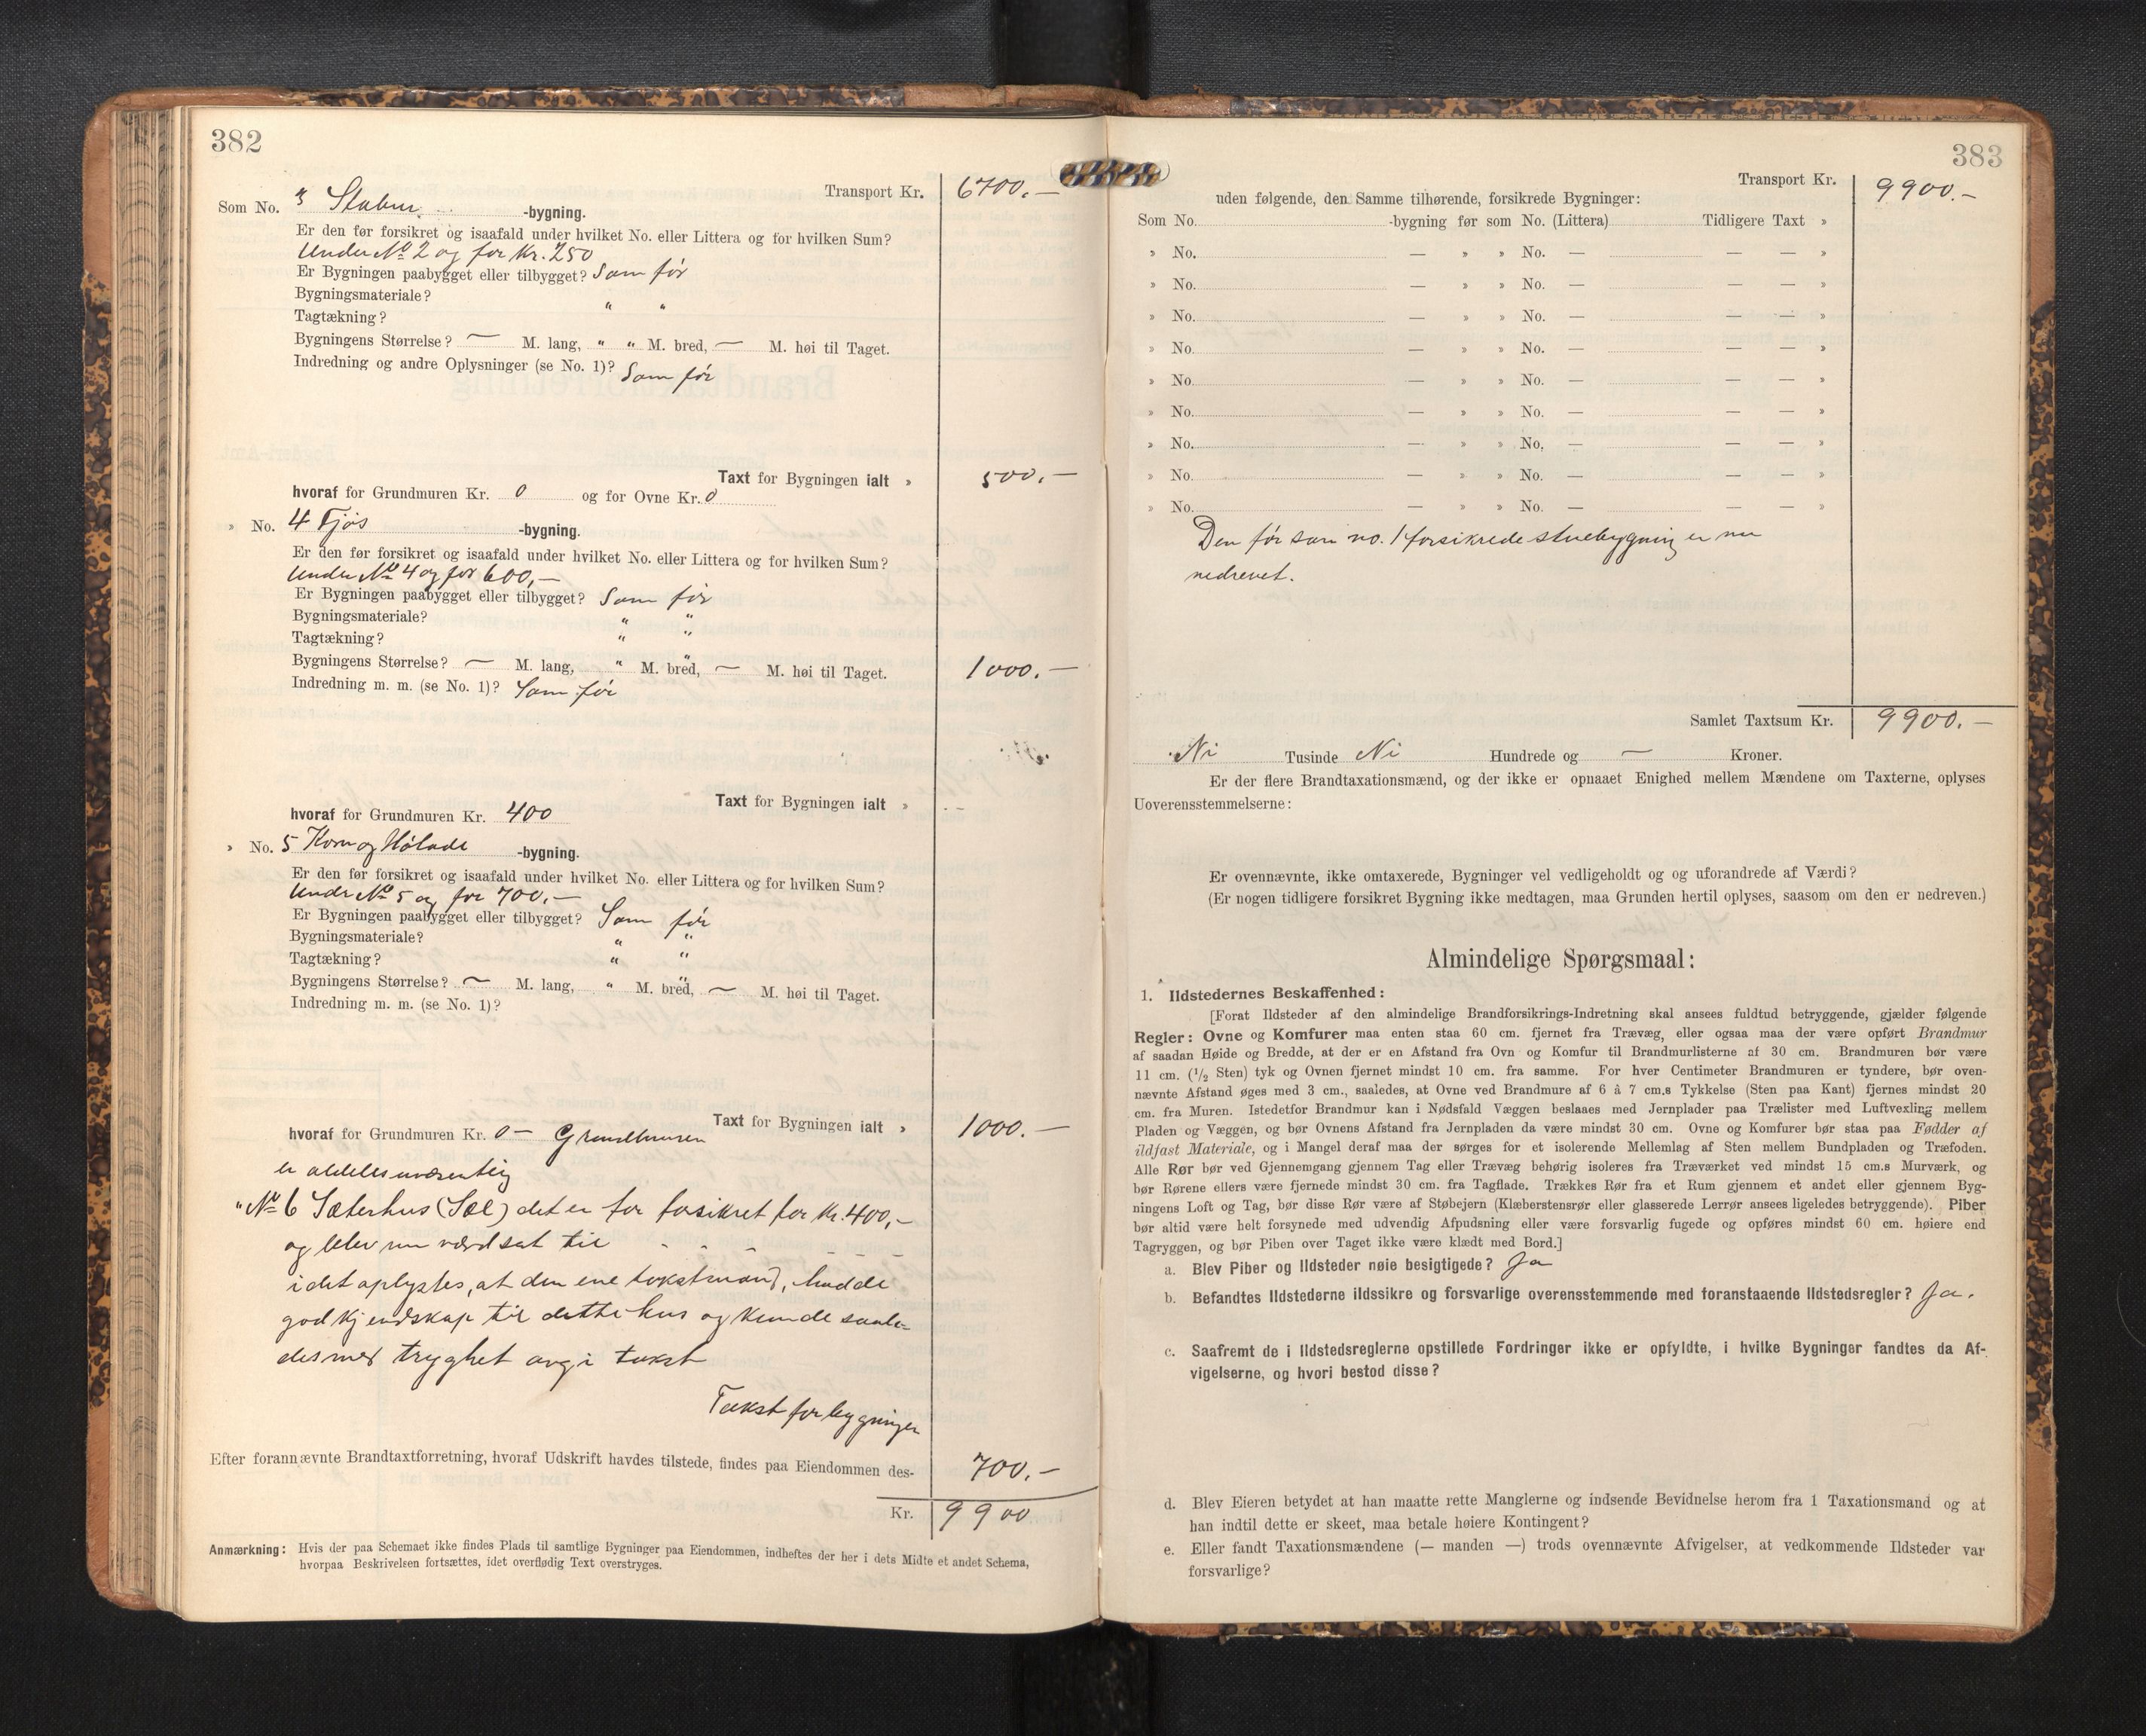 382
Transport Kr. 6700.—
Som No. 3 Stabur -bygning.
Er den før forsikret og isaafald under hvilket No. eller Littera og for hvilken Sum?
Under No 2 og for Kr. 250
Er Bygningen paabygget eller tilbygget? Som før
Bygningsmateriale? " "
Tagtækning?
Bygningens Størrelse? — M. lang, " " M. bred, — M. høi til Taget.
Indredning og andre Oplysninger (se No. 1)? Som før
Taxt for Bygningen ialt » 500.—
hvoraf for Grundmuren Kr. 0 og for Ovne Kr. 0
» No. 4 Fjøs -bygning.
Er den før forsikret og isaafald under hvilket No. eller Littera og for hvilken Sum?
Under No 4 og for 600,—
Er Bygningen paabygget eller tilbygget? Som før
Bygningsmateriale? " "
Tagtækning? "
Bygningens Størrelse? — M. lang, " M. bred, " — M. høi til Taget. 1000.—
Indredning m. m. (se No. 1)? Som før
Taxt for Bygningen ialt »
hvoraf for Grundmuren Kr. 400
» No. 5 Korn og Hølade -bygning.
Er den før forsikret og isaafald under hvilket No. eller Littera og for hvilken Sum?
Under No 5 og for 700.—
Er Bygningen paabygget eller tilbygget? Som før
Bygningsmateriale? " "
Tagtækning? " "
Bygningens Størrelse? — M. lang, " M. bred, " — M. høi til Taget.
Indredning m. m. (se No. 1)?
Taxt for Bygningen ialt » 1000.—
hvoraf for Grundmuren Kr. 0 — Grundmuren
er aldeles uvæsentlig
" No 6 Sæterhus (Sæl) det er før forsikret for Kr. 400,—
og blev nu værdsat til - - - -
idet oplystes, at den ene takstmand, hadde
godt kjendskap til dette hus og kunde saale-
des med tryghet avgi takst
Takst for bygningen
Efter forannævnte Brandtaxtforretning, hvoraf Udskrift havdes tilstede, findes paa Eiendommen des- 700.—
Kr. 9900
Anmærkning: Hvis der paa Schemaet ikke findes Plads til samtlige Bygninger paa Eiendommen, indheftes der her i dets Midte et andet Schema,
hvorpaa Beskrivelsen fortsættes, idet overflødig Text overstryges.
383
Transport Kr. 9900.—
uden følgende, den Samme tilhørende, forsikrede Bygninger:
Som No. -bygning før som No. (Littera) Tidligere Taxt »
» No. — » » No. — — — »
» No. — » » No. — — — »
» No. — » » No. — — — »
» No. — » » No. — — — »
» No. — » » No. — — — »
» No. — » » No. — — — »
» No. — » » No. — — — »
» No. — » » No. — — — »
» No. — » » No. — — — »
Den før som no. 1 forsikrede stuebygning er nu
nedrevet.
Samlet Taxtsum Kr. 9900.—
Ni Tusinde Ni Hundrede og — Kroner.
Er der flere Brandtaxationsmænd, og der ikke er opnaaet Enighed mellem Mændene om Taxterne, oplyses
Uoverensstemmelserne:
Er ovennævnte, ikke omtaxerede, Bygninger vel vedligeholdt og og uforandrede af Værdi?
(Er nogen tidligere forsikret Bygning ikke medtagen, maa Grunden hertil oplyses, saasom om den er nedreven.)
Almindelige Spørgsmaal:
1. Ildstedernes Beskaffenhed:
[Forat Ildsteder af den almindelige Brandforsikrings-Indretning skal ansees fuldtud betryggende, gjælder følgende
Regler: Ovne og Komfurer maa enten staa 60 cm. fjernet fra Trævæg, eller ogsaa maa der være opført Brandmur
af saadan Høide og Bredde, at der er en Afstand fra Ovn og Komfur til Brandmurlisterne af 30 cm. Brandmuren bør være
11 cm. (1/2 Sten) tyk og Ovnen fjernet mindst 10 cm. fra samme. For hver Centimeter Brandmuren er tyndere, bør oven-
nævnte Afstand øges med 3 cm., saaledes, at Ovne ved Brandmure af 6 à 7 cm.s Tykkelse (Sten paa Kant) fjernes mindst 20
cm. fra Muren. Istedetfor Brandmur kan i Nødsfald Væggen beslaaes med Jernplader paa Trælister med Luftvexling mellem
Pladen og Væggen, og bør Ovnens Afstand fra Jernpladen da være mindst 30 cm. Ovne og Komfurer bør staa paa Fødder af
ildfast Materiale, og i Mangel deraf maa der sørges for et isolerende Mellemlag af Sten mellem Bundpladen og Træfoden.
Alle Rør bør ved Gjennemgang gjennem Tag eller Trævæg behørig isoleres fra Træværket ved mindst 15 cm.s Murværk, og
bør Rørene ellers være fjernede mindst 30 cm. fra Tagflade. Trækkes Rør fra et Rum gjennem et andet eller gjennem Byg-
ningens Loft og Tag, bør disse Rør være af Støbejern (Klæberstensrør eller glasserede Lerrør ansees ligeledes betryggende). Piber
bør altid være helt forsynede med udvendig Afpudsning eller være forsvarlig fugede og opføres mindst 60 cm. høiere end
Tagryggen, og bør Piben over Taget ikke være klædt med Bord.]
a. Blev Piber og Ildsteder nøie besigtigede? Ja
b. Befandtes Ildstederne ildssikre og forsvarlige overensstemmende med foranstaaende Ildstedsregler? Ja.
c. Saafremt de i Ildstedsreglerne opstillede Fordringer ikke er opfyldte, i hvilke Bygninger fandtes da Af-
vigelserne, og hvori bestod disse?
d. Blev Eieren betydet at han maatte rette Manglerne og indsende Bevidnelse herom fra 1 Taxationsmand og at
han indtil dette er skeet, maa betale høiere Kontingent?
e. Eller fandt Taxationsmændene (— manden —) trods ovennævnte Afvigelser, at vedkommende Ildsteder var
forsvarlige?